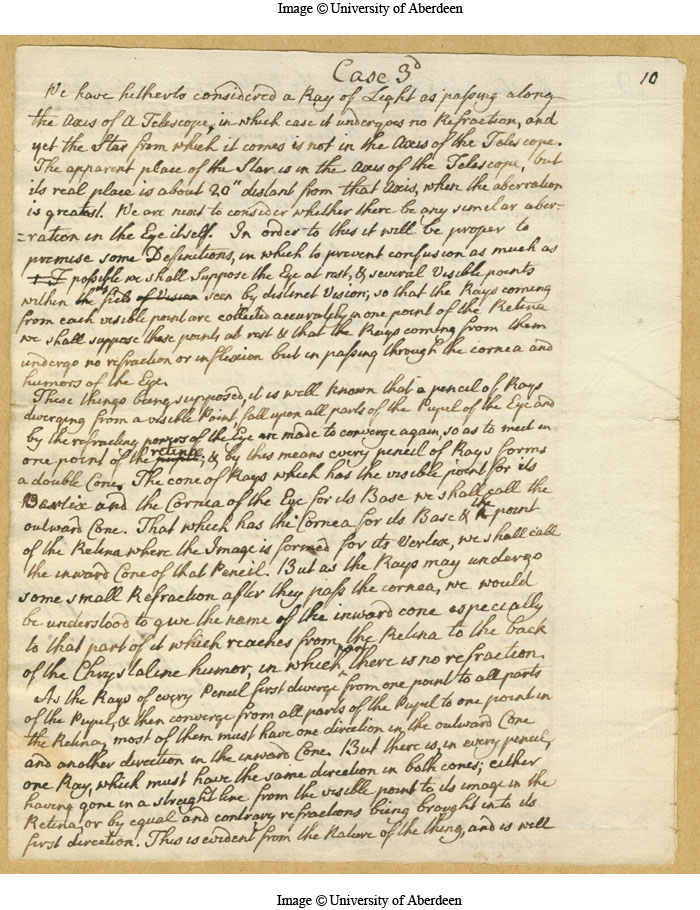 Image © University of Aberdeen
Case 3d
10
We have hitherto considered a Ray of Light as passing along
the Axis of A Telescope, in which case it undergoes no Refraction, and
yet the Star from which it comes is not in the Axis of the Telescope.
The apparent place of the Star is in the Axis of the Telescope, but
its real place is about 20" distant from that Axis, when the aberration
is greatest. We are next to consider whether there be any similar aber-
=ration in the Eye itself. In order to this it will be proper to
premise some Definitions, in which to prevent confusion as much as
possible we shall Suppose the Eye at rest, & several Visible points
within field of Vision seen by distinct Vision; so that the Rays coming
from each visible point are collected accurately in one point of the Retina
we shall suppose these points at rest & that the Rays coming from them
undergo no refraction or inflexion but in passing through the cornea and
humors of the Eye.
These things being supposed, it is well known that a pencil of Rays
diverging from a visible Point, fall upon all parts of the Pupil of the Eye and
by the refracting powers of the Eye are made to converge again so as to meet in
one point of the retina; & by this means every pencil of Rays forms
a double Cone. The cone of Rays which has the visible point for its
Vertix and the Cornea of the Eye for its Base we shall call the
outward Cone. That which has the Cornea for its Base & the point
of the Retina where the Image is formed for its Vertex, we shall call
the inward Cone of that Pencil. But as the Rays may undergo
some small Refraction after they pass the cornea, we would
be understood to give the name of the inward cone especially
to that part of it which reaches from the Retina to the back
of the Chrystaline humor, in which part there is no refraction.
As the Rays of every Pencil first diverge from one point to all parts
of the Pupil, & then converge from all parts of the Pupil to one point in
the Retina, most of them must have one direction in the outward Cone
and another direction in the inward Cone. But there is, in every pencil,
one Ray, which must have the same direction in both cones; either
having gone in a streight line from the visible point to its image in the
Retina, or by equal and contrary refractions being brought into its
first direction. This is evident from the Nature of the thing, and is well
Image © University of Aberdeen